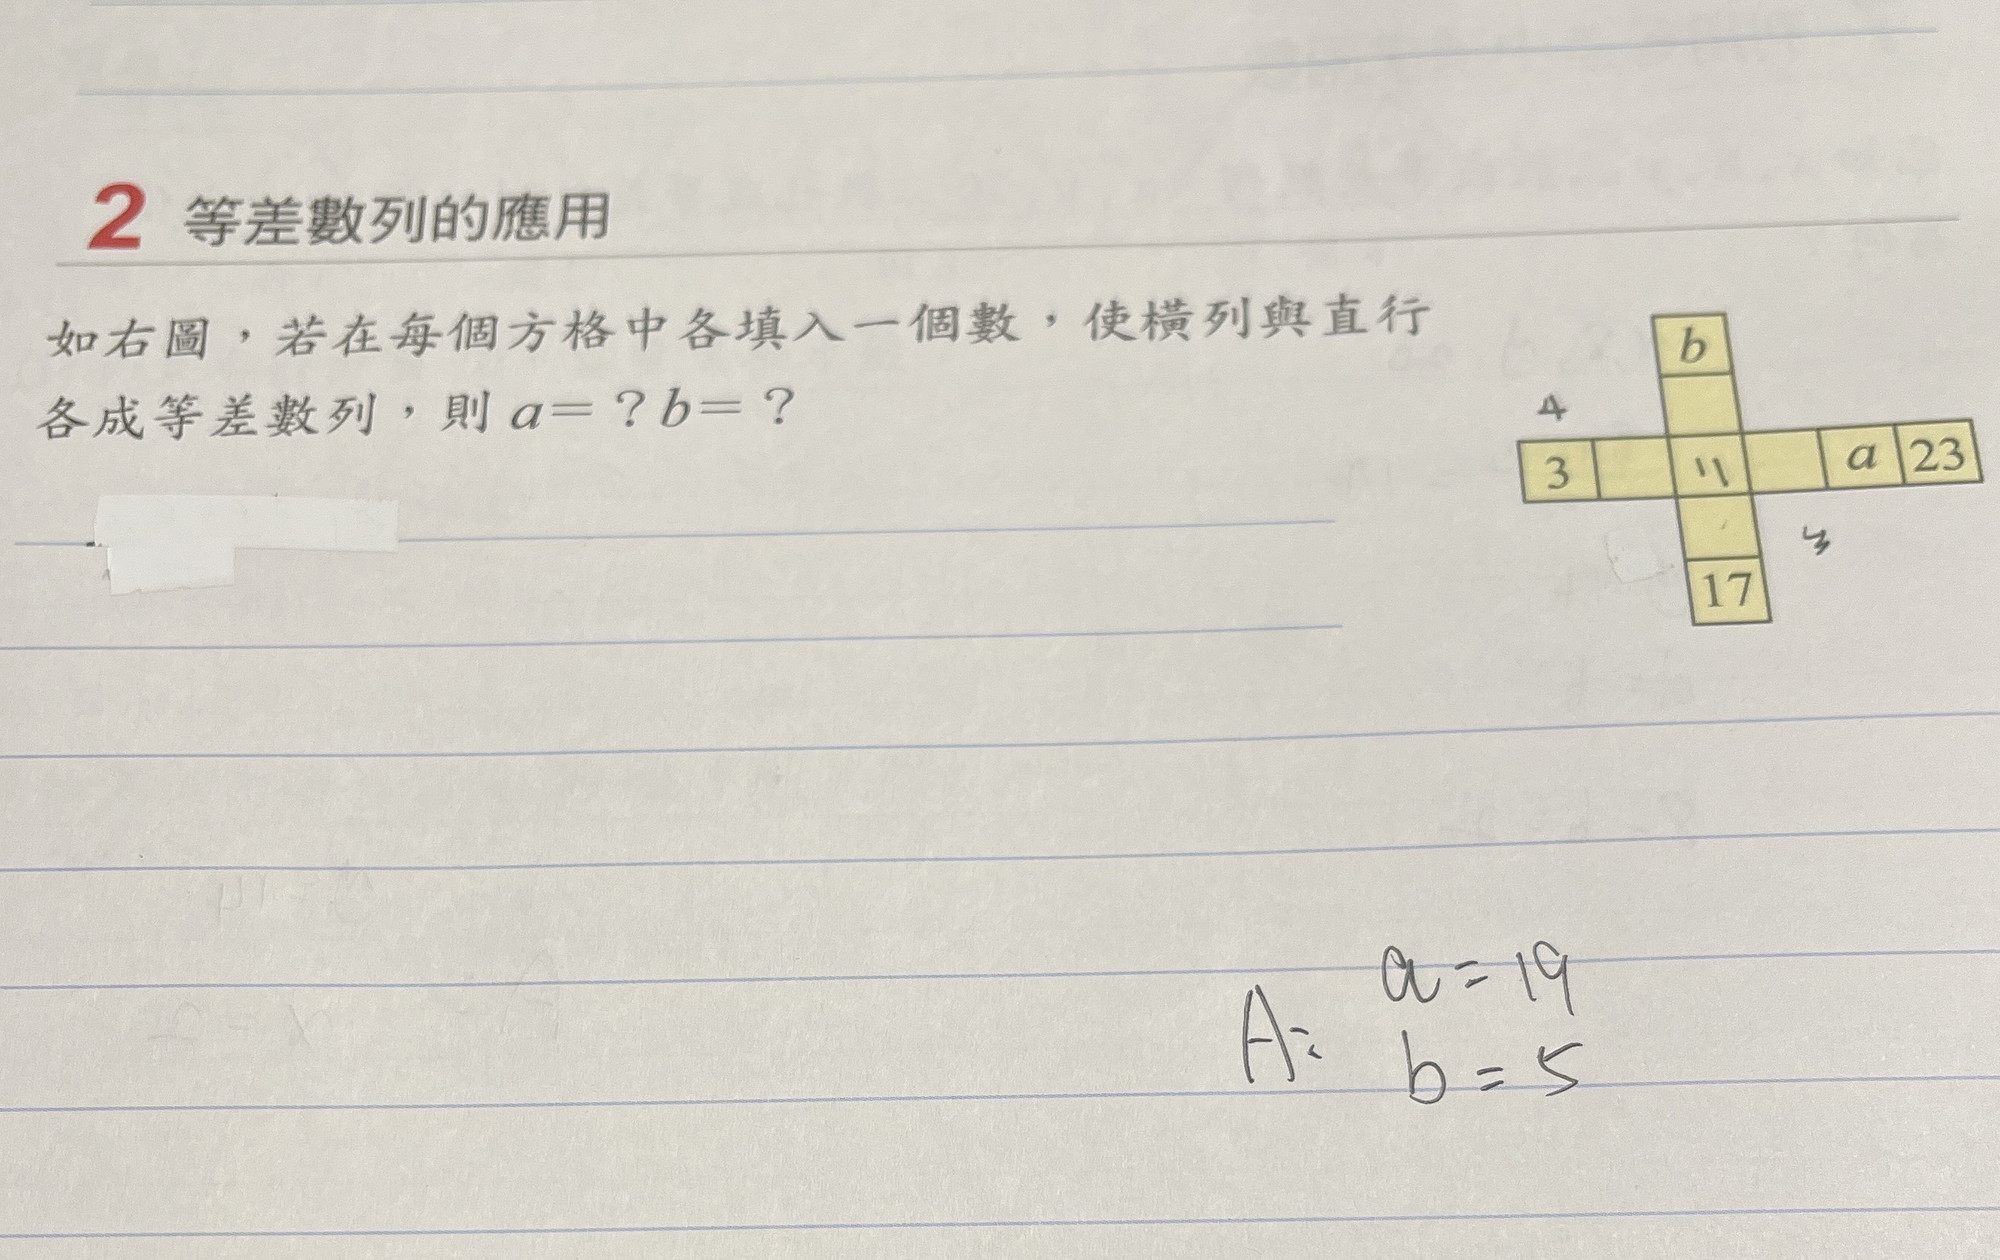 2 等差數列的應用
如右圖，若在每個方格中各填入一個數，使橫列與直行
各成等差數列，則 a=？b=？
b
4
3 11 a 23
3
17
A: a=19
b=5